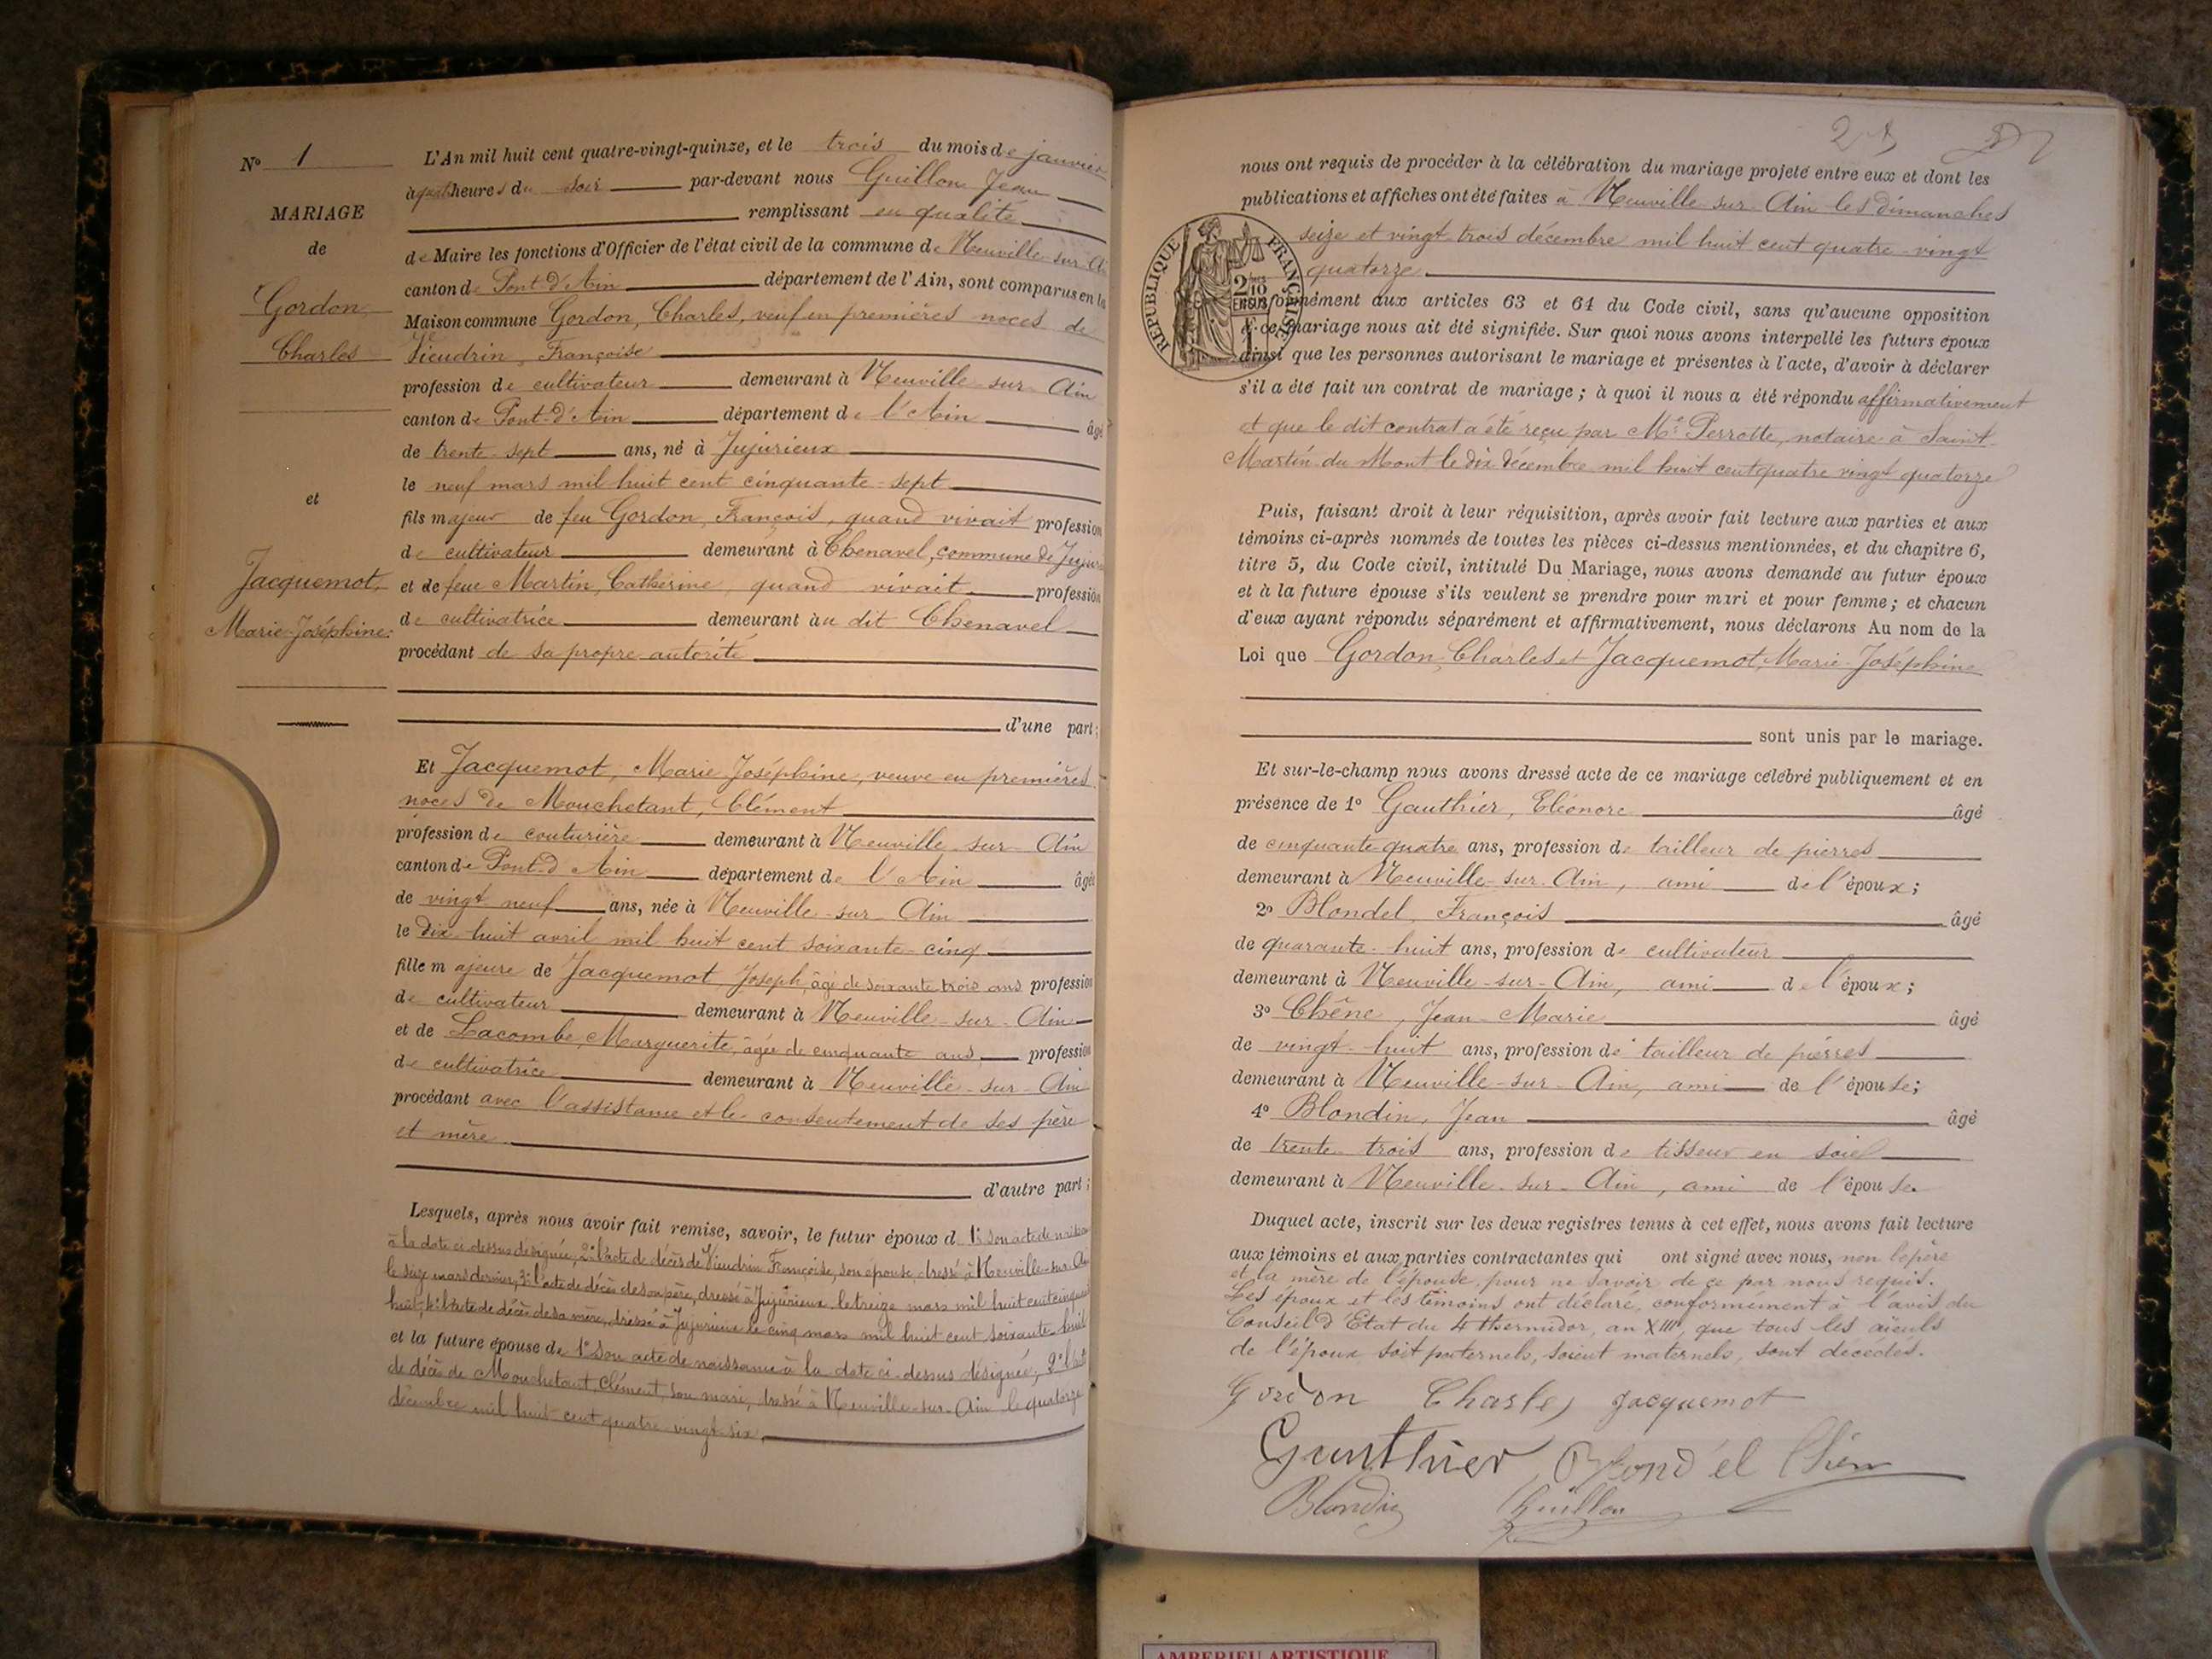 N° 1
MARIAGE
de
Gordon,
Charles
et
Jacquemot,
Marie-Joséphine.
L'An mil huit cent quatre-vingt-quinze, et le trois du mois de janvier
à quatre heures du soir par-devant nous Guillon Jean
remplissant en qualité
de Maire les fonctions d'Officier de l'état civil de la commune de Neuville-sur-Ain
canton de Pont-d'Ain département de l'Ain, sont comparus en la
Maison commune Gordon, Charles, veuf en premières noces de
Vieudrin, Françoise
profession de cultivateur demeurant à Neuville-sur-Ain
canton de Pont-d'Ain département de l'Ain âgé
de trente-sept ans, né à Jujurieux
le neuf mars mil huit cent cinquante-sept
fils majeur de feu Gordon, François, quand vivait profession
de cultivateur demeurant à Chenavel, commune de Jujurieux
et de feue Martin, Cathérine, quand vivait profession
de cultivatrice demeurant au dit Chenavel
procédant de sa propre autorité
d'une part;
Et Jacquemot, Marie-Joséphine, veuve en premières
noces de Mouchetant, Clément
profession de couturière demeurant à Neuville-sur-Ain
canton de Pont-d'Ain département de l'Ain âgée
de vingt-neuf ans, née à Neuville-sur-Ain
le dix-huit avril mil huit cent soixante-cinq
fille majeure de Jacquemot, Joseph, âgé de soixante-trois ans profession
de cultivateur demeurant à Neuville-sur-Ain
et de Lacombe, Marguerite, âgée de cinquante ans, profession
de cultivatrice demeurant à Neuville-sur-Ain
procédant avec l'assistance et le consentement de ses père
et mère.
d'autre part;
Lesquels, après nous avoir fait remise, savoir, le futur époux d 1° son acte de naissance
à la date ci-dessus désignée, 2° l'acte de décès de Vieudrin Françoise, son épouse, dressé à Neuville-sur-Ain
le seize mars dernier, 3° l'acte de décès de son père, dressé à Jujurieux le treize mars mil huit cent cinquante
huit, 4° l'acte de décès de sa mère, dressé à Jujurieux le cinq mars mil huit cent soixante-huit
et la future épouse de 1° son acte de naissance à la date ci-dessus désignée, 2° l'acte
de décès de Mouchetant, Clément, son mari, dressé à Neuville-sur-Ain le quatorze
décembre mil huit cent quatre-vingt-six.
nous ont requis de procéder à la célébration du mariage projeté entre eux et dont les
publications et affiches ont été faites à Neuville-sur-Ain les dimanches
seize et vingt-trois décembre mil huit cent quatre-vingt
quatorze
RÉPUBLIQUE FRANÇAISE
2/10 EN SUS
conformément aux articles 63 et 64 du Code civil, sans qu'aucune opposition
à ce mariage nous ait été signifiée. Sur quoi nous avons interpellé les futurs époux
ainsi que les personnes autorisant le mariage et présentes à l'acte, d'avoir à déclarer
s'il a été fait un contrat de mariage; à quoi il nous a été répondu affirmativement
et que le dit contrat a été reçu par Me Perrotte, notaire à Saint-
Martin-du-Mont le dix décembre mil huit cent quatre vingt quatorze
Puis, faisant droit à leur réquisition, après avoir fait lecture aux parties et aux
témoins ci-après nommés de toutes les pièces ci-dessus mentionnées, et du chapitre 6,
titre 5, du Code civil, intitulé Du Mariage, nous avons demandé au futur époux
et à la future épouse s'ils veulent se prendre pour mari et pour femme; et chacun
d'eux ayant répondu séparément et affirmativement, nous déclarons Au nom de la
Loi que Gordon, Charles et Jacquemot, Marie-Joséphine
sont unis par le mariage.
Et sur-le-champ nous avons dressé acte de ce mariage célébré publiquement et en
présence de 1° Gauthier, Eléonore âgé
de cinquante-quatre ans, profession de tailleur de pierres
demeurant à Neuville-sur-Ain, ami de l'époux;
2° Blondel, François âgé
de quarante-huit ans, profession de cultivateur
demeurant à Neuville-sur-Ain, ami de l'époux;
3° Chêne, Jean-Marie âgé
de vingt-huit ans, profession de tailleur de pierres
demeurant à Neuville-sur-Ain, ami de l'épouse;
4° Blondin, Jean âgé
de trente-trois ans, profession de tisseur en soie
demeurant à Neuville-sur-Ain, ami de l'épouse
Duquel acte, inscrit sur les deux registres tenus à cet effet, nous avons fait lecture
aux témoins et aux parties contractantes qui ont signé avec nous, non le père
et la mère de l'épouse, pour ne savoir de ce par nous requis.
Les époux et les témoins ont déclaré, conformément à l'avis du
Conseil d'État du 4 thermidor, an XIII, que tous les aïeuls
de l'époux soit paternels, soient maternels, sont décédés.
Gordon Charles Jacquemot
Gauthier Blondel Chêne
Blondin Guillon
AMBERIEU ARTISTIQUE